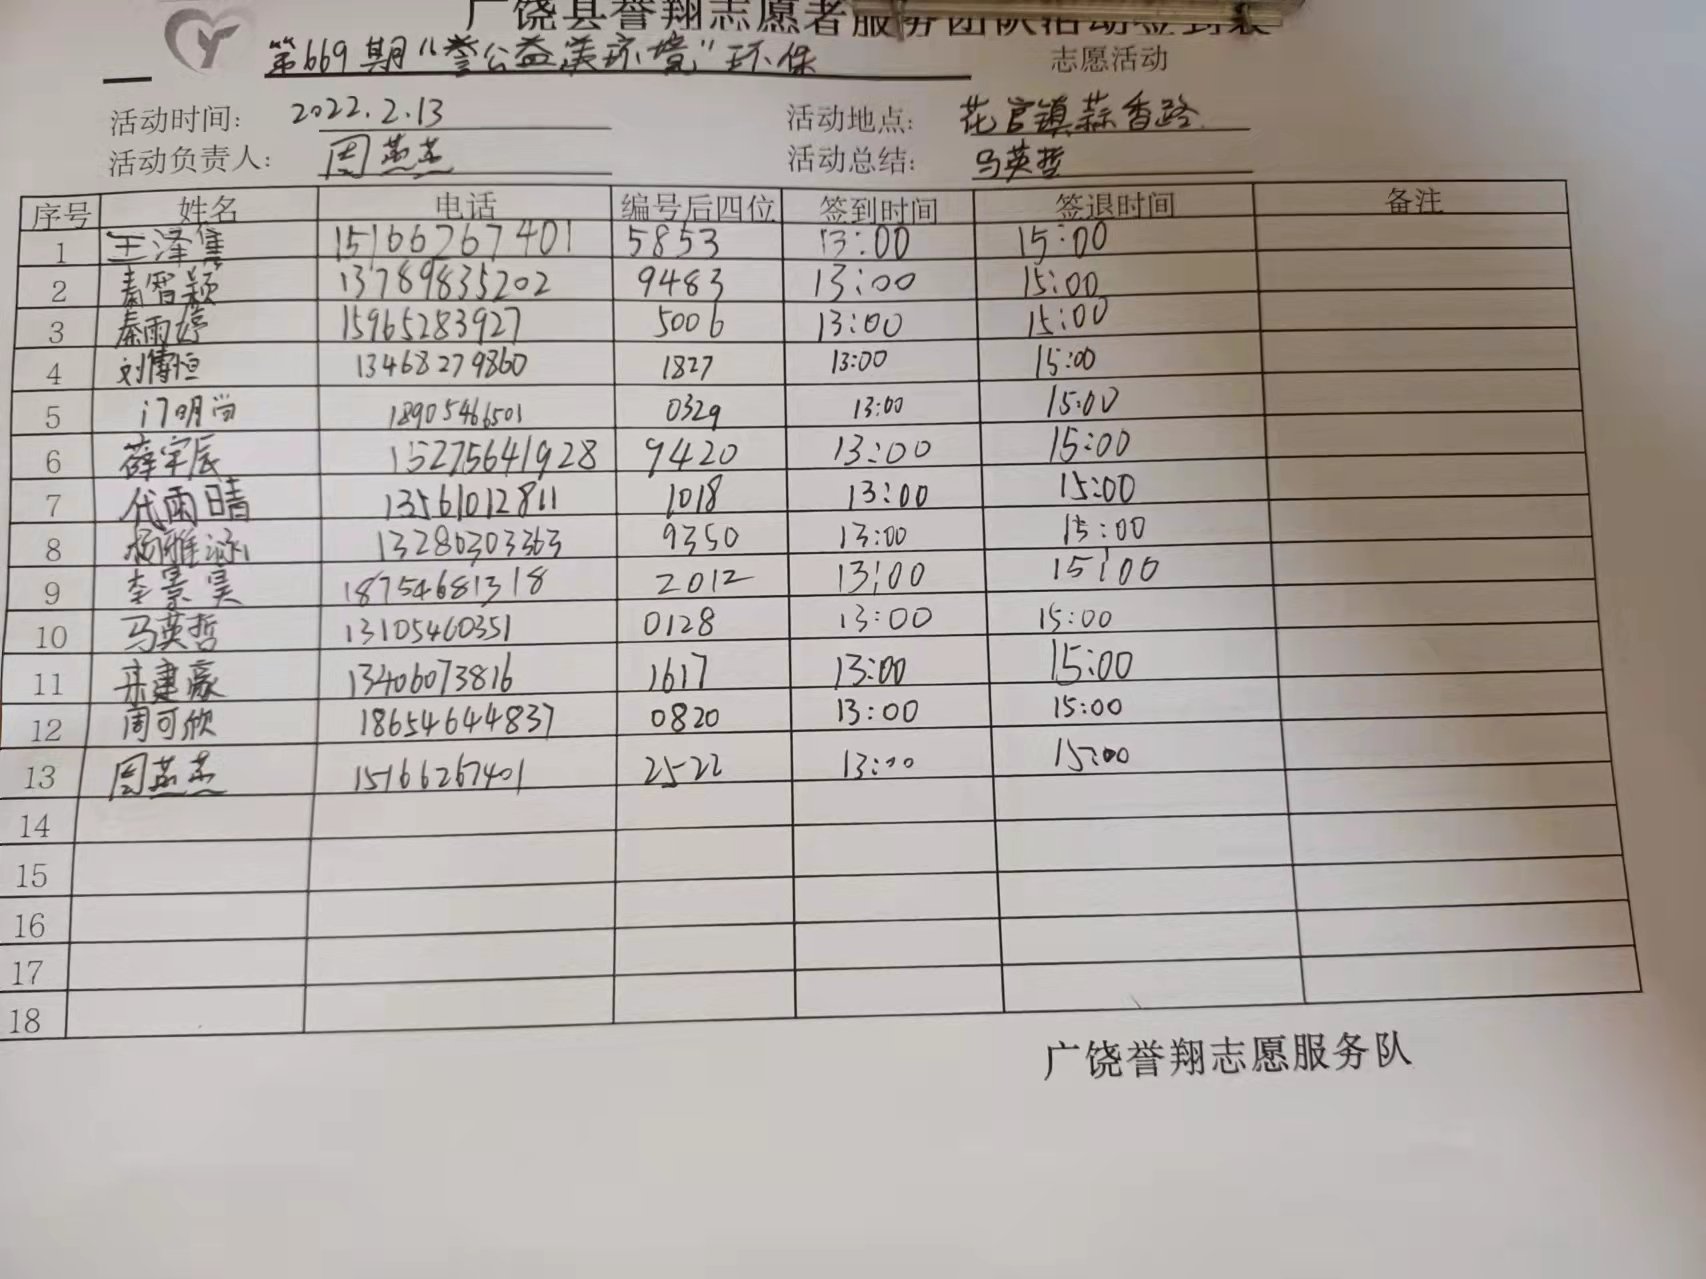 广饶县誉翔志愿者服务团队活动签到表
第669期“誉公益美环境”环保 志愿活动
活动时间: 2022.2.13 活动地点: 花官镇蒜香路
活动负责人: 周燕燕 活动总结: 马英哲
序号 姓名 电话 编号后四位 签到时间 签退时间 备注
1 王泽隽 15166267401 5853 13:00 15:00
2 秦智颖 13789835202 9483 13:00 15:00
3 秦雨婷 15965283927 5006 13:00 15:00
4 刘博恒 13468279860 1827 13:00 15:00
5 门明尚 18905466501 0329 13:00 15:00
6 薛宇辰 15275641928 9420 13:00 15:00
7 代雨晴 13561012811 1018 13:00 15:00
8 杨雅涵 13280303363 9350 13:00 15:00
9 李景昊 18754681318 2012 13:00 15:00
10 马英哲 13105460351 0128 13:00 15:00
11 建豪 13406073816 1617 13:00 15:00
12 周可欣 18654644837 0820 13:00 15:00
13 周燕燕 15166267401 2522 13:00 15:00
14
15
16
17
18
广饶誉翔志愿服务队